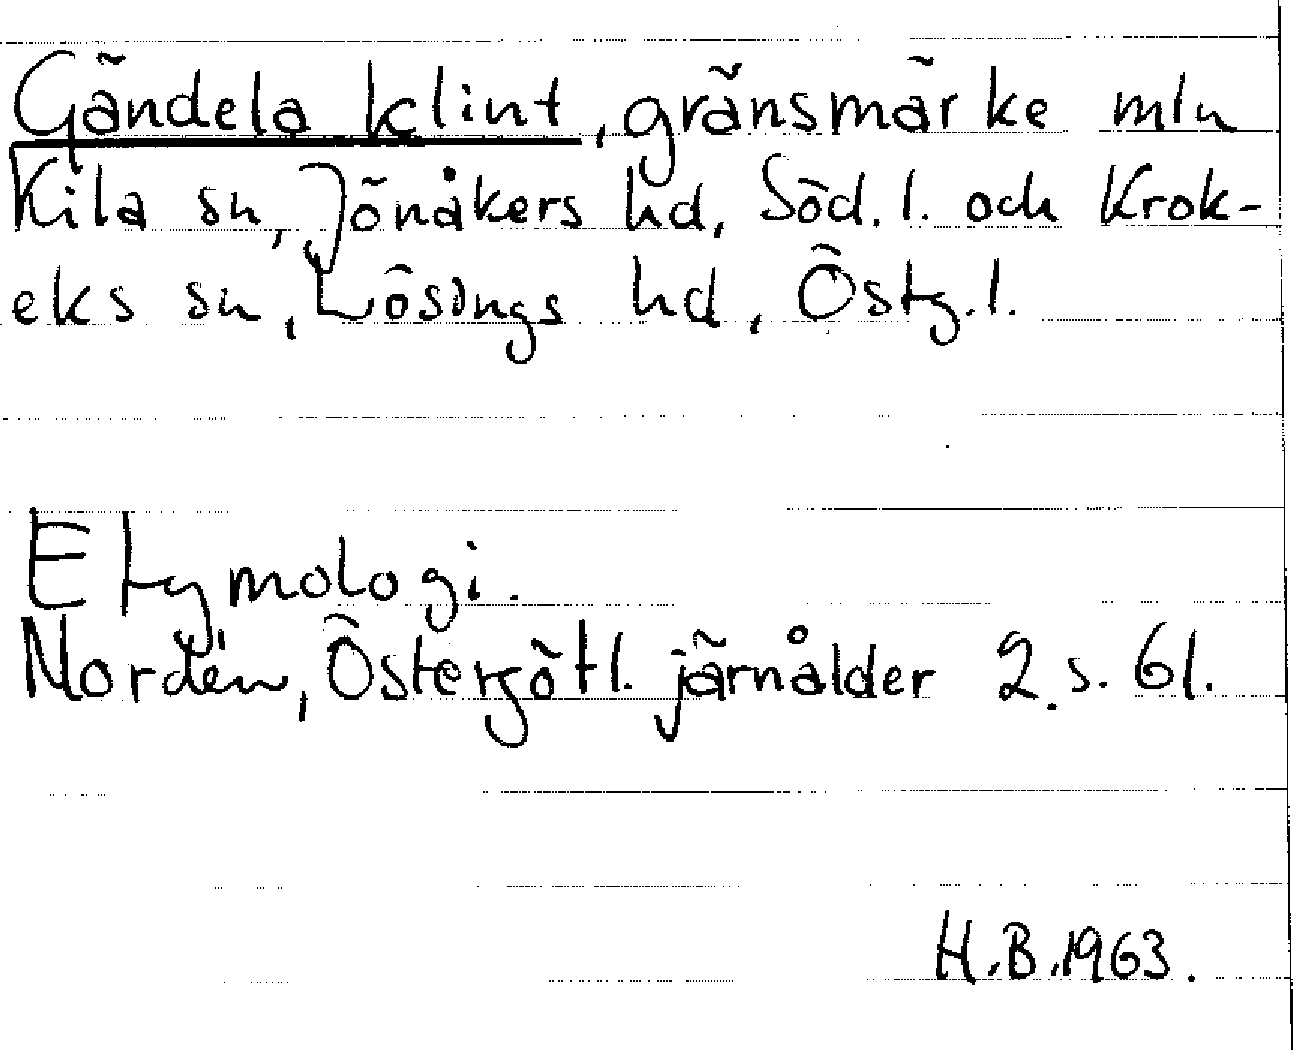 Gändela klint, gränsmärke mln
Kila sn, Jönåkers hd, Söd. l. och Krok-
eks sn, Lösings hd, Östg. l.
Etymologi.
Nordén, Östergötl. järnålder 2. s. 61.
H.B. 1963.